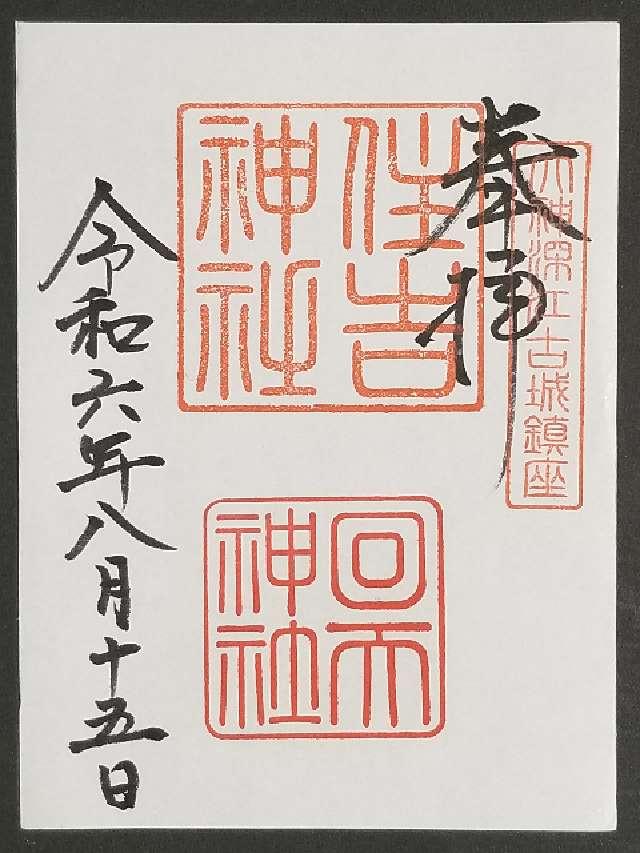 大神深江古城鎮座
奉拝
住吉
神社
回天
神社
令和六年八月十五日